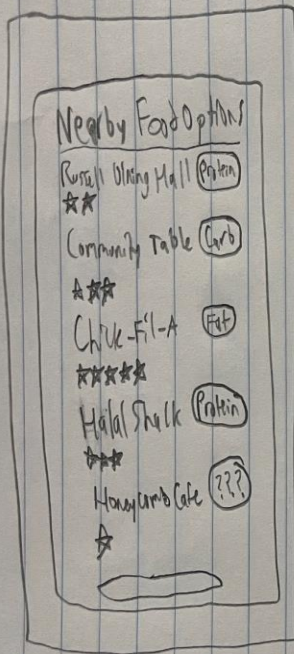 Nearby Food Options
Russell Dining Hall Protein
Community Table Carb
Chick-Fil-A Fat
Halal Shack Protein
Honeycomb Cafe ???